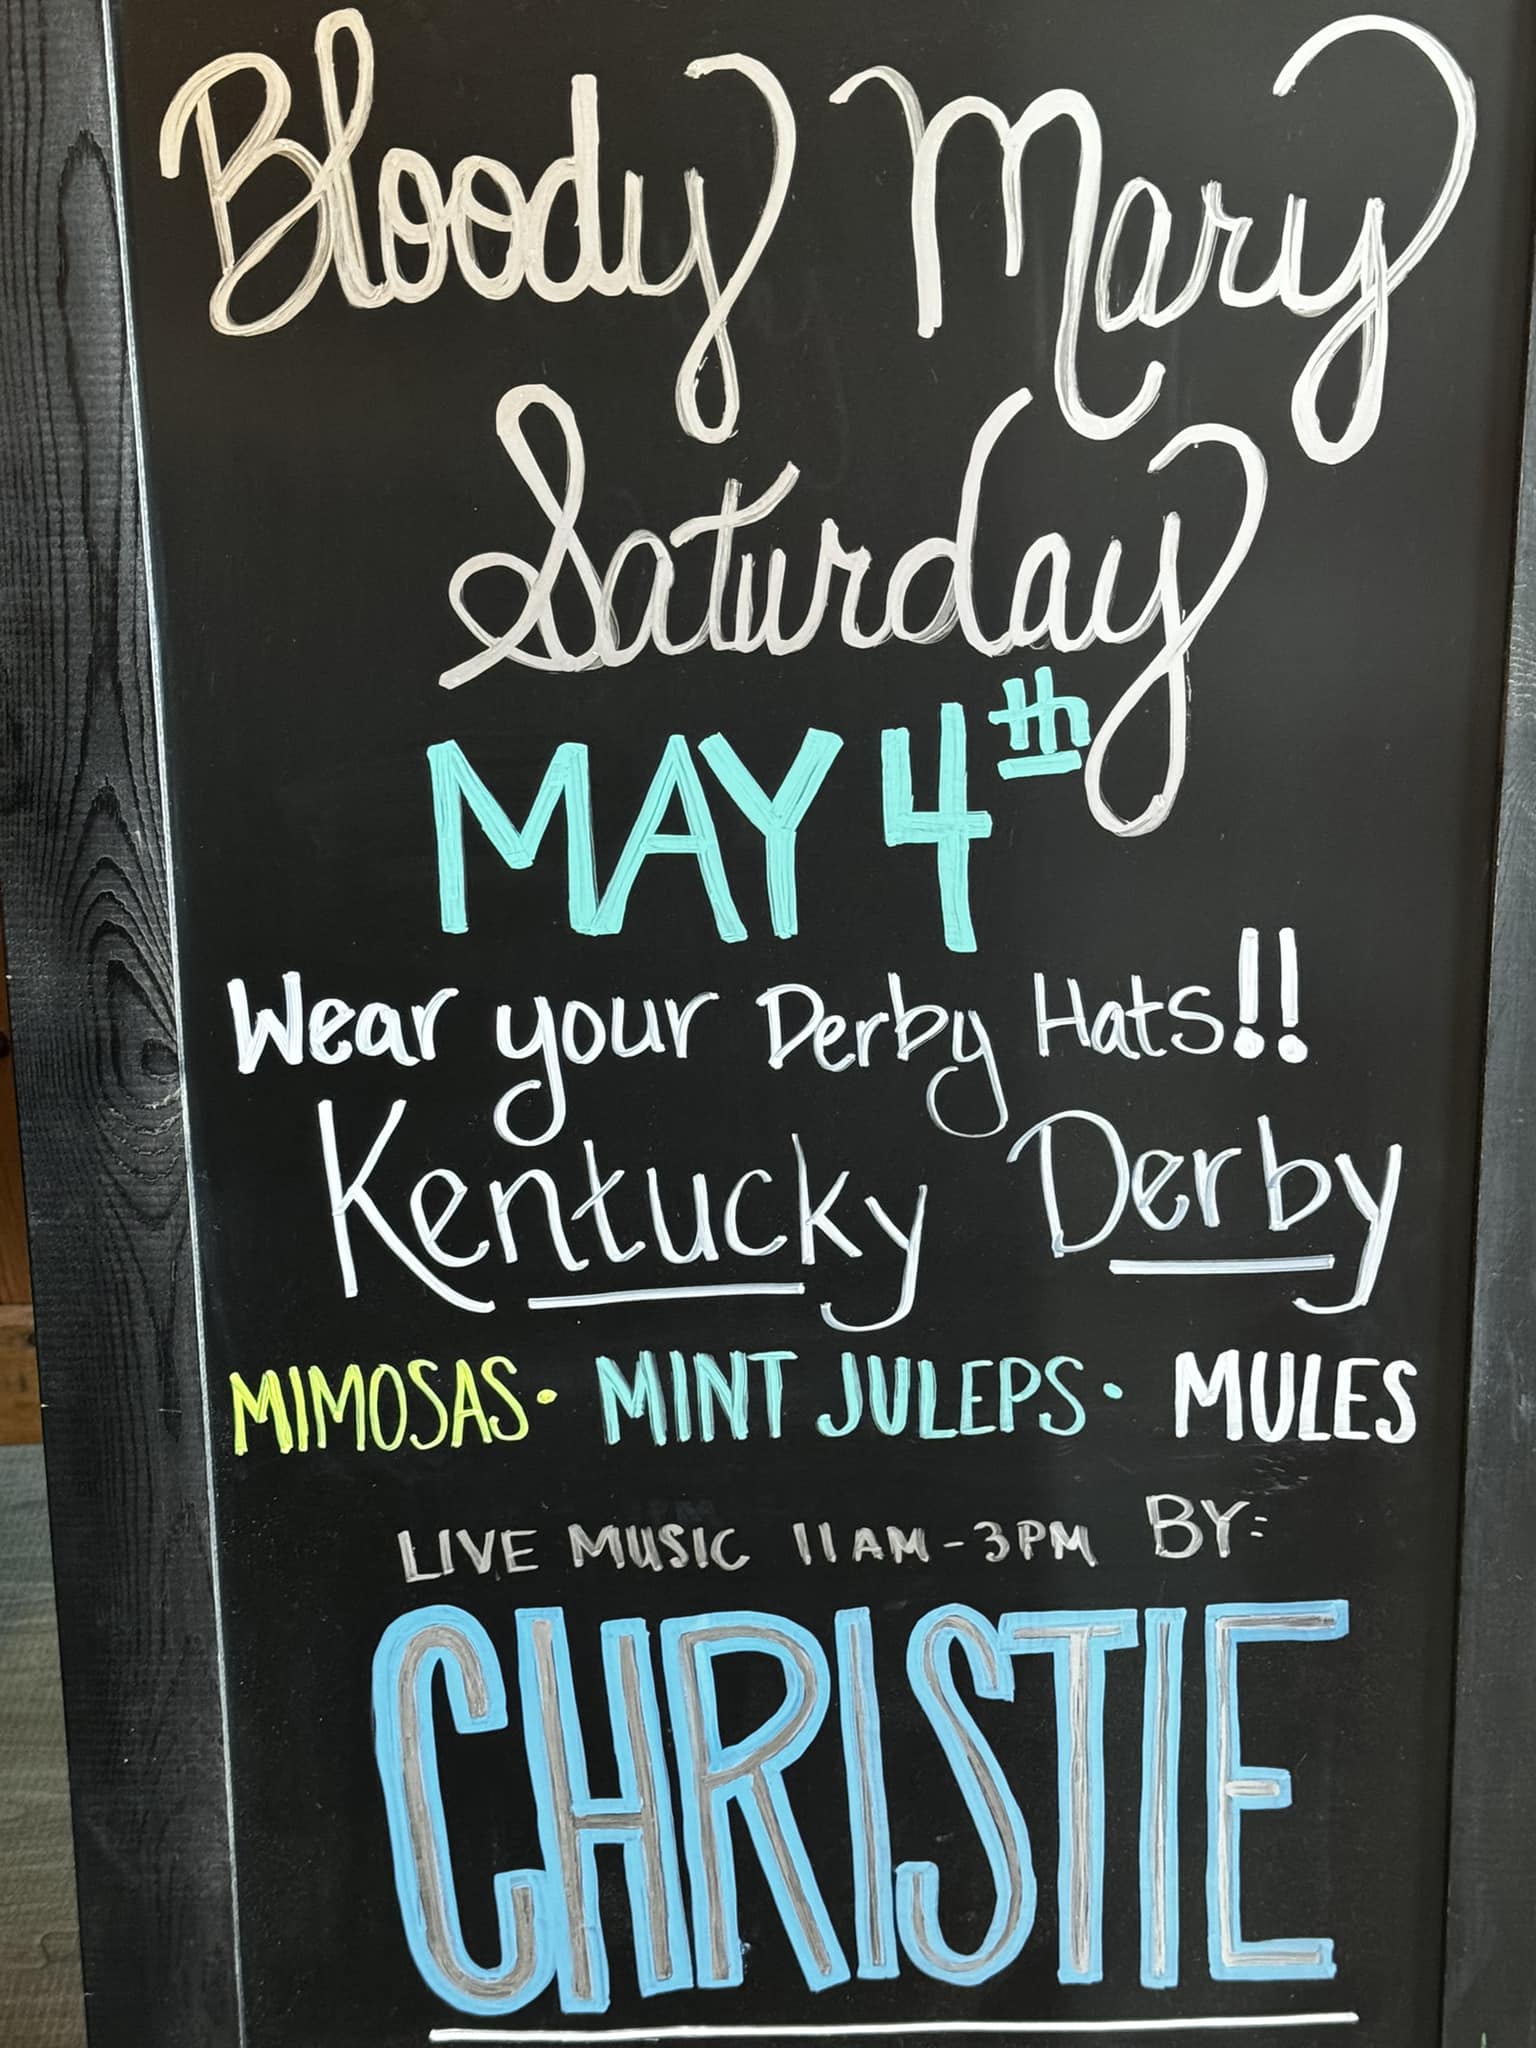 Bloody Mary
Saturday
MAY 4th
Wear your Derby Hats!!
Kentucky Derby
MIMOSAS • MINT JULEPS • MULES
LIVE MUSIC 11AM-3PM BY:
CHRISTIE